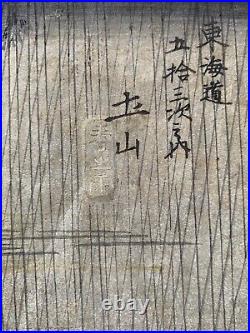 東海道
五拾三次之内
土山